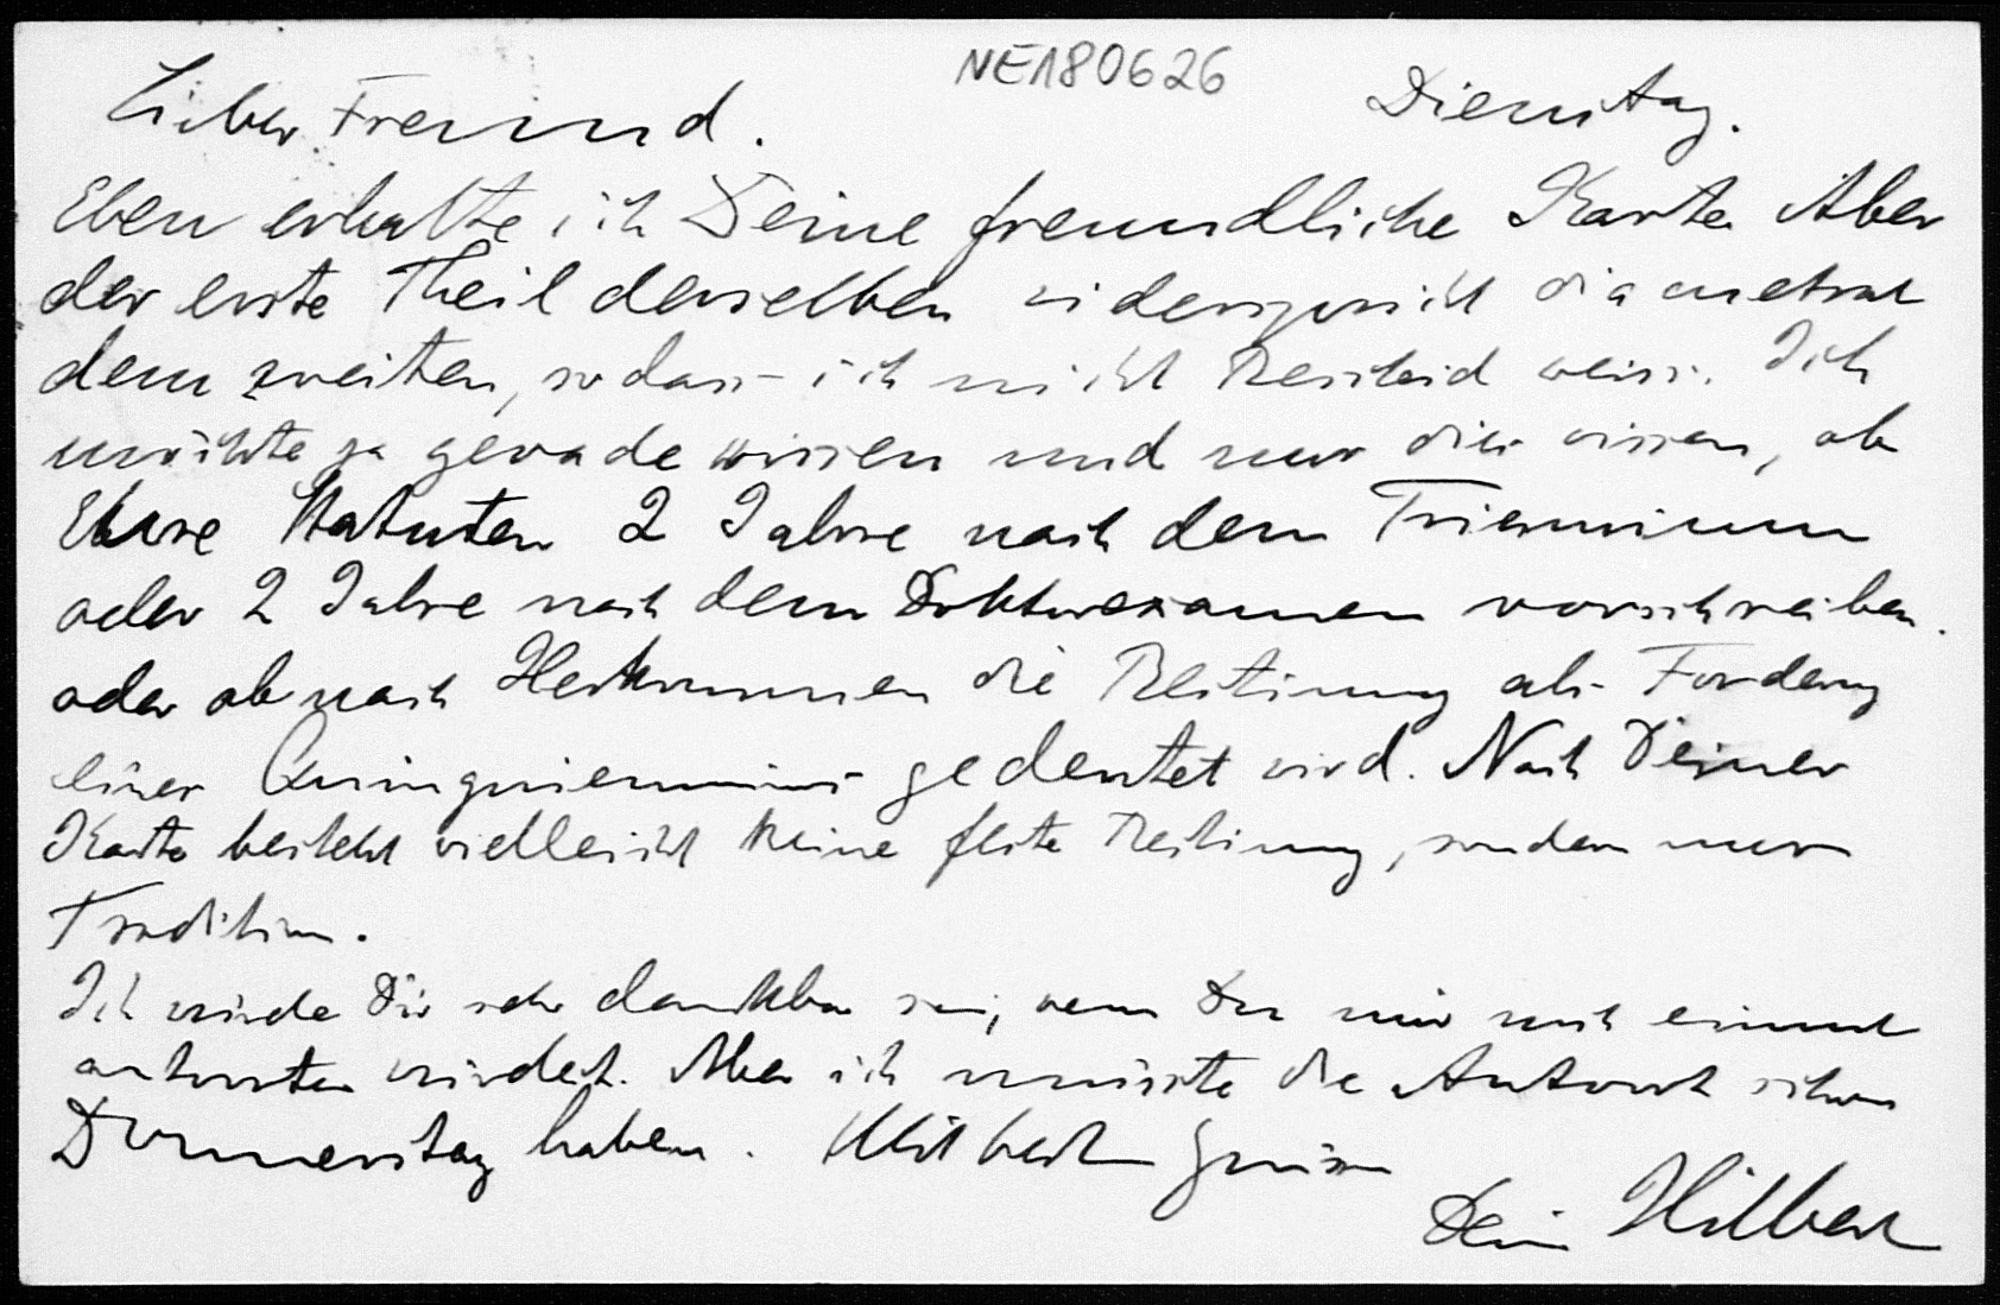 NE180626
Lieber Freund. Dienstag.
Eben erhalte ich Deine freundliche Karte. Aber
der erste Theil derselben widerspricht diametral
dem zweiten, sodass ich nicht Bescheid weiss. Ich
möchte ja gerade wissen und nur dies wissen, ob
Eure Statuten 2 Jahre nach dem Triennium
oder 2 Jahre nach dem Doktorexamen vorschreiben.
oder ob nach Herkommen die Bestimung als Forderung
einer Quinquienniums gedeutet wird. Nach Deiner
Karte besteht vielleicht keine feste Bestimung, sondern nur
Tradition.
Ich würde Dir sehr dankbar sein, wenn Du mir noch einmal
antworten würdest. Aber ich müsste die Antwort schon
Donnerstag haben. Mit besten Grüssen
Dein Hilbert